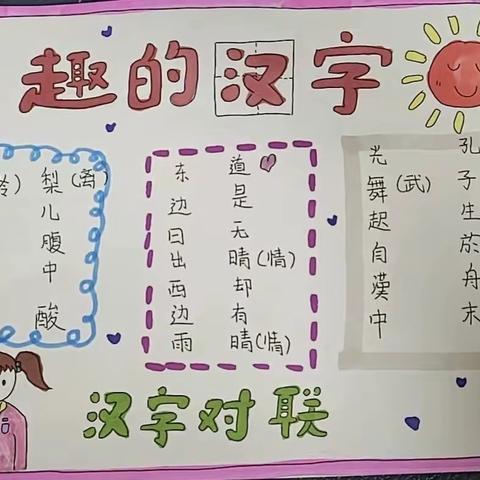 趣的汉字
梨(离)儿腹中酸
东边日出西边雨
道是无晴(情)却有晴(情)
光舞(武)起自漢中
孔子生於舟末
汉字对联